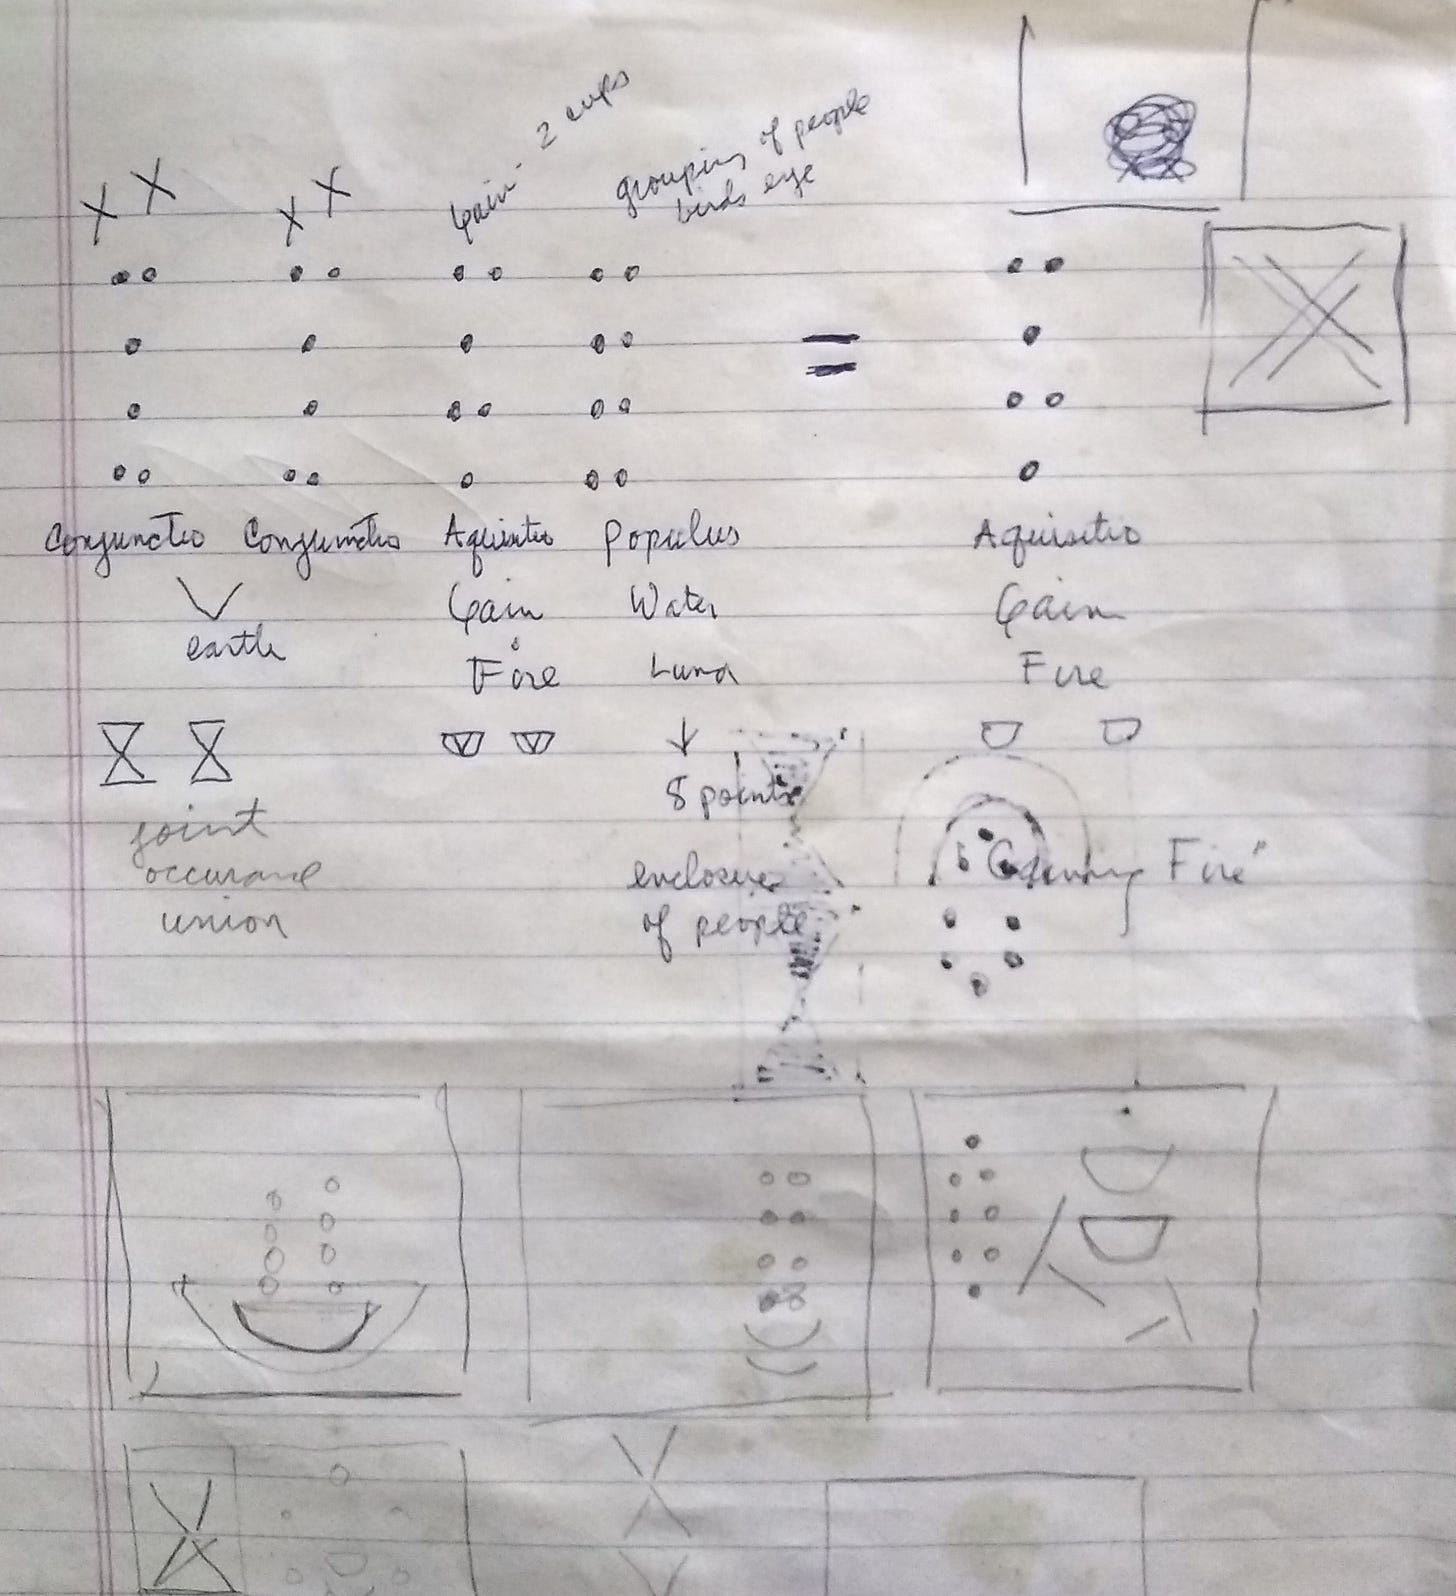 X X
X X
Gain - 2 cups
grouping of people
birds eye
=
Conjunctio Conjunctio Aquisitio Populus Aquisitio
Gain Water Gain
earth
Fire Luna Fire
8 points
joint
occurance
enclosure
"Gaining Fire"
union
of people